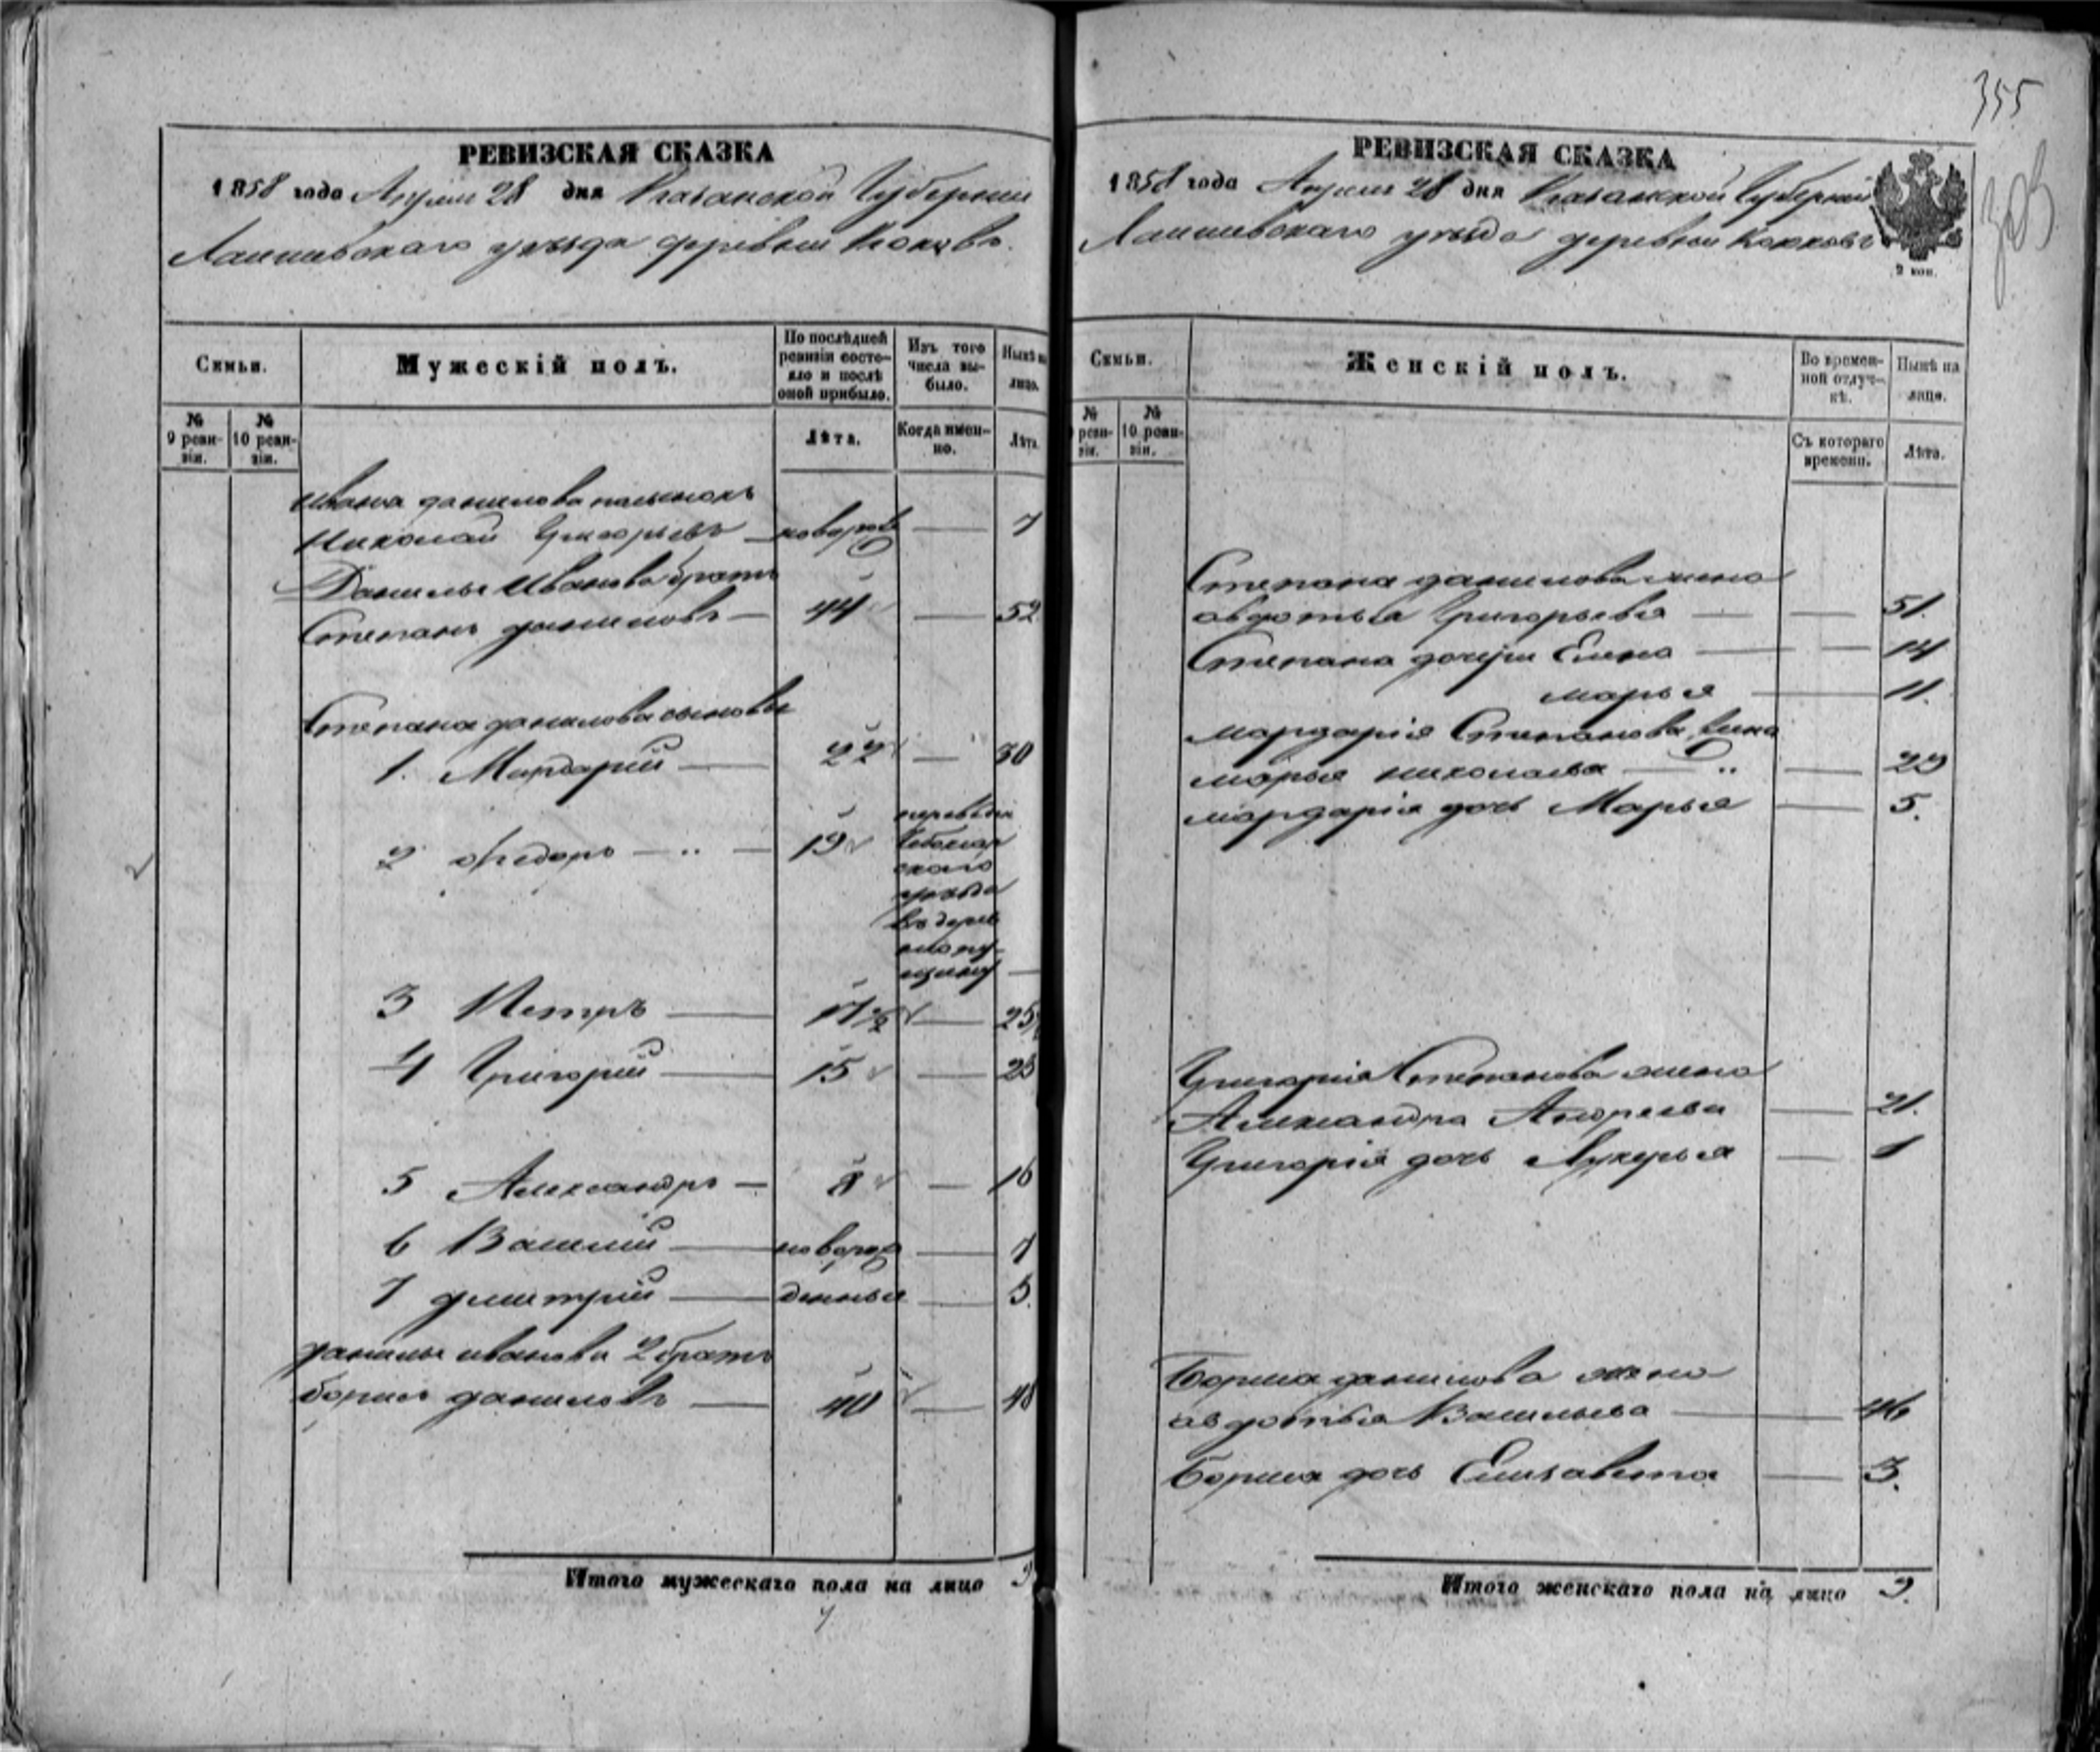 355
РЕВИЗСКАЯ СКАЗКА
1858 года Апреля 28 дня Казанской Губернии
Лаишевскаго уезда деревни
Семьи.
Мужескій полъ.
По послѣдней ревизіи состояло и послѣ оной прибыло.
Изъ того числа выбыло.
Нынѣ на лицо.
№ 9 ревизіи.
№ 10 ревизіи.
Лѣта.
Когда именно.
Лѣта.
Ивана данилова
Николай Григорьевъ — новорож — 7
Данилы Иванова братъ
Степанъ даниловъ — 44 — 52
Степана данилова сыновья
1. Мардарій — 22 — 30
2 Федоръ — 19
перевед
Чебоксар
скаго
уезда
въ дерев
ню
3 Петръ — 17½ — 25½
4 Григорій — 15 — 23
5 Александръ — 8 — 16
6 Василий — новорож — 7
7 дмитрий — денные — 5.
данилы иванова 2 братъ
борисъ даниловъ — 40 — 48
Итого мужескаго пола на лицо 9
РЕВИЗСКАЯ СКАЗКА
1858 года Апреля 28 дня Казанской Губерний
Лаишевскаго уезда деревни
2 коп.
Семьи.
Женскій полъ.
Во временной отлучкѣ.
Нынѣ на лицо.
№ ревизіи.
№ 10 ревизіи.
Съ котораго времени.
Лѣта.
Степана данилова жена
авдотья Григорьева — — 51.
Степана дочери Елена — — 14
марья — 11.
мардарія Степанова жена
марья николаева — — 29
мардарія дочь Марья — 5.
Григорія Степанова жена
Александра Андреева — 21.
Григорія дочь Лукерья — 1
Бориса данилова жена
авдотья Васильева — 46
Бориса дочь Елисавета — 3.
Итого женскаго пола на лицо 9.